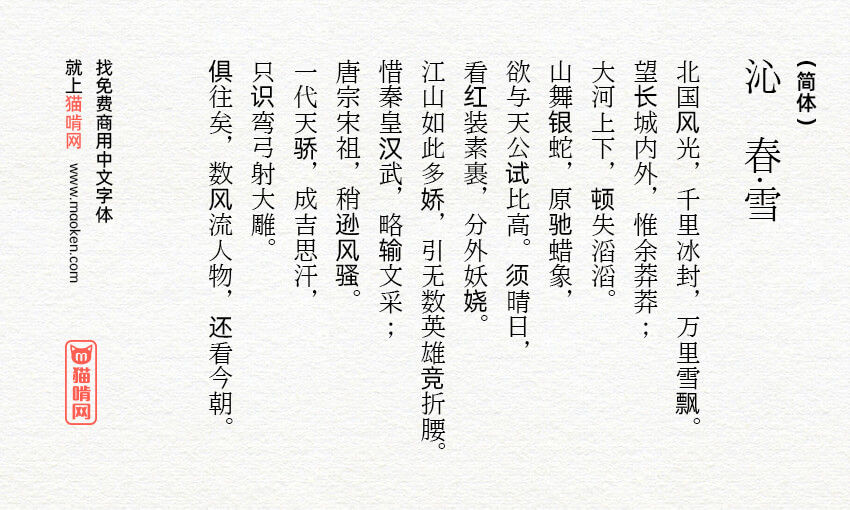 (简体)
沁　春·雪
北国风光，千里冰封，万里雪飘。
望长城内外，惟余莽莽；
大河上下，顿失滔滔。
山舞银蛇，原驰蜡象，
欲与天公试比高。须晴日，
看红装素裹，分外妖娆。
江山如此多娇，引无数英雄竞折腰。
惜秦皇汉武，略输文采；
唐宗宋祖，稍逊风骚。
一代天骄，成吉思汗，
只识弯弓射大雕。
俱往矣，数风流人物，还看今朝。
找免费商用中文字体
就上猫啃网 www.mooken.com
m
猫啃网